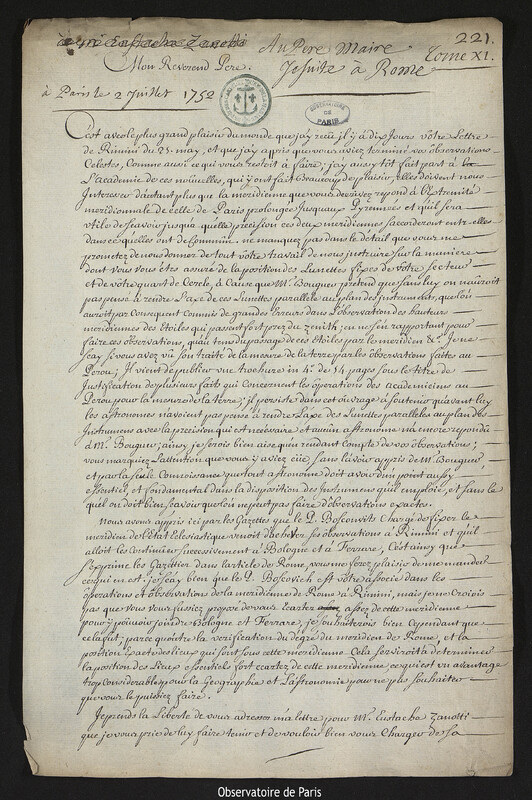 à Mr. Eustache Zanotti
221.
Au Pere Maire
Tome XI.
Mon Reverend Pere.
Jesuite à Rome
à Paris le 2 Juillet 1752
OBSERVATOIRE DE PARIS
C'est avec le plus grand plaisir du monde que j'ay reçu il y à dix Jours vôtre Lettre
de Rimini du 25. may, et que j'ay apris que vous aviez terminé vos observations
Celestes, Comme aussi ce qui vous restoit à faire; j'ay aussy tôt fait part à
L'academie de ces nouvelles, qui y ont fait Beaucoup de plaisir, elles doivent nous
Interesser d'autant plus que la meridienne que vous decrivez repond à l'extremité
meridionnale de celle de Paris prolongée jusqu'aux Pyrennées et qu'il sera
utile de sçavoir jusqu'a quelle précision ces deux meridiennes s'accorderont entr-elles
dans ce qu'elles ont de Commun. ne manquez pas dans le détail que vous me
prometez de nous donner de tout vôtre travail de nous instruire sur la maniere
dont vous vous êtes assuré de la position des Lunettes fixes de vôtre secteur
et de vôtre quart de Cercle, à Cause que Mr. Bouguer prétend que sans luy on n'auroit
pas pensé à rendre l'axe de ces Lunettes parallèle au plan des instruments, que l'on
auroit par Consequent Commis de grandes Erreurs dans l'observation des hauteurs
meridiennes des étoiles qui passent fort près du zenith, en ne s'en rapportant pour
faire ces observations, qu'au tems du passage de ces étoiles par le meridien &c. Je ne
sçay si vous avez vû son traité de la mesure de la terre par les observations faites au
Perou; Il vient de publier une brochure in 4°. de 54 pages sous le titre de
Justification de plusieurs faits qui Concernent les operations des academiciens au
Perou pour la mesure de la terre; il persiste dans cet ouvrage à soutenir qu'avant luy
les astronomes n'avoient pas pensé à rendre l'axe des Lunettes paralleles au plan des
Instrumens avec la precision qui est necessaire et aucun astronome n'a encore repondu
à Mr. Bouguer; ainsy je serois bien aise qu'en rendant Compte de vos observations;
vous marquiez l'attention que vous y aviez eüe sans l'avoir appris de Mr. Bouguer
et par la seule Connoissance que tout astronome doit avoir d'un point aussy
essentiel et fondamental dans la disposition des Instrumens qu'il emploie, et sans le
quel on doit bien sçavoir que l'on ne peut pas faire d'observations exactes.
Nous avons appris ici par les Gazettes que le P. Boscowits Chargé de fixer le
meridien de l'etat Eclesiastique venoit d'achever ses observations à Rimini et qu'il
alloit les Continuer successivement à Bologne et à Ferrare, C'est ainsy que
s'exprime les Gazettier dans l'article de Rome, vous me ferez plaisir de me mander
ce qui en est. je sçay bien que le P. Boscovich est vôtre associé dans les
operations et observations de la meridienne de Rome à Rimini, mais je ne Croiois
pas que vous vous fussiez proposé de vous écarter assez de cette meridienne
pour y pouvoir joindre Bologne et Ferrare, je souhaiterois bien Cependant que
cela fut, parce qu'outre la verification du degré du meridien de Rome, et la
position exacte des lieux qui sont sous cette meridienne Cela serviroit a determiner
la position des Lieux essentiels fort écartez de cette meridienne ce qui est un avantage
trop considerable pour la Geographie et L'astronomie pour ne pas souhaiter
que vous le puissiez faire.
Je prends la Liberté de vous adresser ma lettre pour Mr. Eustache Zanotti
que je vous prie de luy faire tenir et de vouloir bien vous Charger de sa
Observatoire de Paris